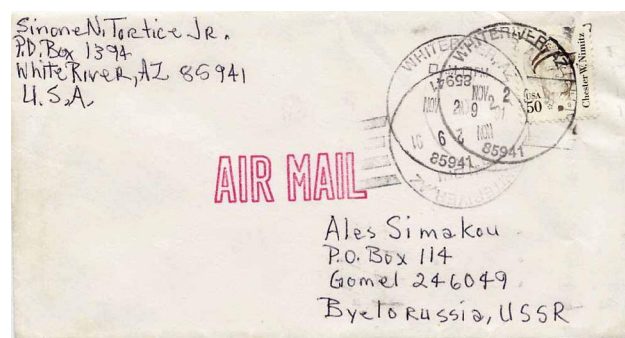 Sinone N. Tortice Jr.
P.O. Box 1394
White River, AZ 85941
U.S.A.
WHITERIVER, AZ
85941
NOV
2
USA
50
Chester W. Nimitz
85941
AIR MAIL
Ales Simakou
P.O. Box 114
Gomel 246049
Byelorussia, USSR